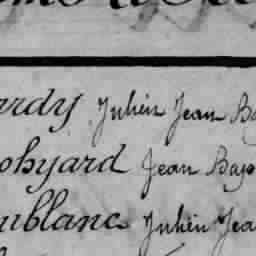 rdy Julien Jean Ba
ohyard Jean Bap
ublanc Julien Jea